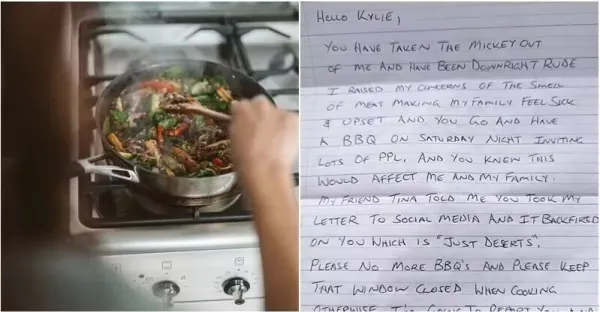 HELLO KYLIE,
YOU HAVE TAKEN THE MICKEY OUT
OF ME AND HAVE BEEN DOWNRIGHT RUDE
I RAISED MY CONCERNS OF THE SMELL
OF MEAT MAKING MY FAMILY FEEL SICK
& UPSET AND YOU GO AND HAVE
A BBQ ON SATURDAY NIGHT INVITING
LOTS OF PPL, AND YOU KNEW THIS
WOULD AFFECT ME AND MY FAMILY.
MY FRIEND TINA TOLD ME YOU TOOK MY
LETTER TO SOCIAL MEDIA AND IT BACKFIRED
ON YOU WHICH IS "JUST DESERTS".
PLEASE NO MORE BBQ'S AND PLEASE KEEP
THAT WINDOW CLOSED WHEN COOKING
OTHERWISE I'M GOING TO REPORT YOU AND